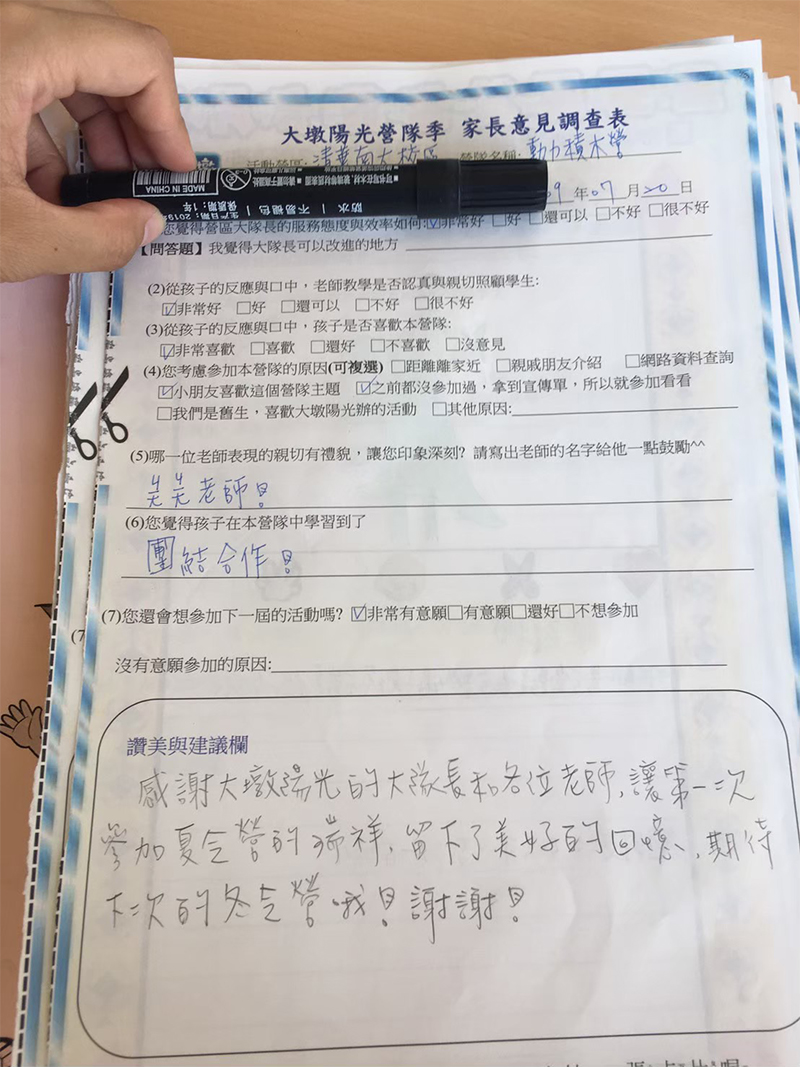 大墩陽光營隊季 家長意見調查表
活動營區: 清華南大校區 營隊名稱: 動力積木營
09 年 07 月 20 日
您覺得營區大隊長的服務態度與效率如何:☑非常好 □好 □還可以 □不好 □很不好
【問答題】我覺得大隊長可以改進的地方
(2)從孩子的反應與口中，老師教學是否認真與親切照顧學生:
☑非常好 □好 □還可以 □不好 □很不好
(3)從孩子的反應與口中，孩子是否喜歡本營隊:
☑非常喜歡 □喜歡 □還好 □不喜歡 □沒意見
(4)您考慮參加本營隊的原因(可複選) □距離離家近 □親戚朋友介紹 □網路資料查詢
☑小朋友喜歡這個營隊主題 ☑之前都沒參加過，拿到宣傳單，所以就參加看看
□我們是舊生，喜歡大墩陽光辦的活動 □其他原因:
(5)哪一位老師表現的親切有禮貌，讓您印象深刻? 請寫出老師的名字給他一點鼓勵^^
老師!
(6)您覺得孩子在本營隊中學習到了
團結合作!
(7)您還會想參加下一屆的活動嗎? ☑非常有意願□有意願□還好□不想參加
(7
沒有意願參加的原因:
讚美與建議欄
感謝大墩陽光的大隊長和各位老師,讓第一次
參加夏令營的瑞祥,留下了美好的回憶,期待
下次的冬令營哦!謝謝!
MADE IN CHINA
防水 | 不易褪色 |
生产日期: 2019
保质期: 1年